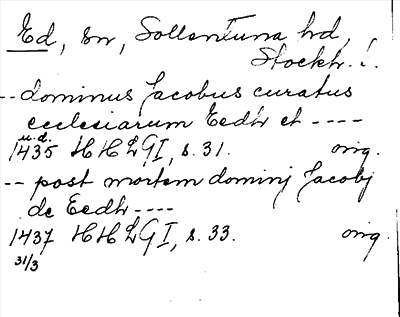 Ed, sn, Sollentuna hd,
Stockh. l.
-- dominus Jacobus curatus
ecclesiarum Eedh et ----
u.d.
1435 HHLGI, s. 31. orig.
-- post mortem dominj Jacobj
de Eedh ----
1437 HHLGI, s. 33. orig.
31/3